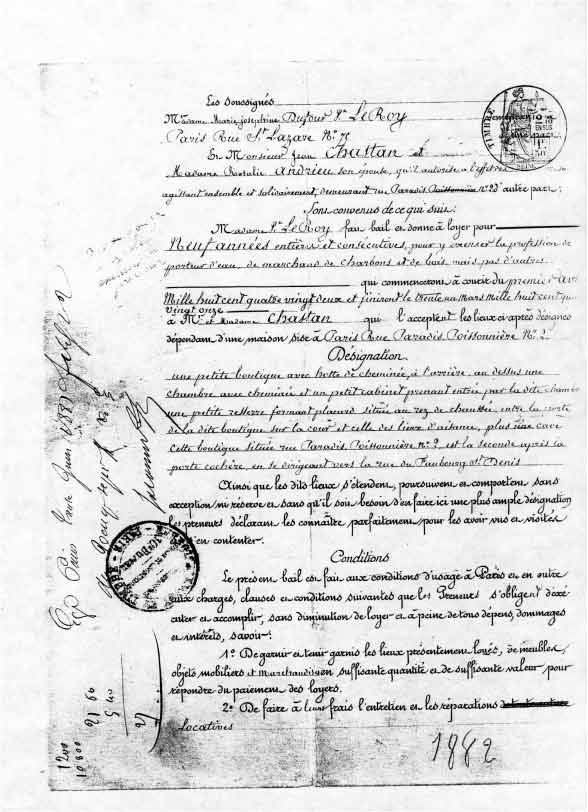 Les soussignés
Madame Marie Josephine Dufour Vve LeRoy
Paris Rue St Lazare No
Et Monsieur Jean Chastan et
Madame Rosalie Andrieu son épouse, qu'il autorise à l'effet
agissant ensemble et solidairement, demeurant rue Paradis Poissonnière no 2 d'autre part;
Sont convenus de ce qui suit:
Madame Vve LeRoy fait bail et donne à loyer pour
Neuf années entières et consécutives, pour y exercer la profession de
porteur d'eau, de marchand de charbons et de bois mais pas d'autres.
qui commenceront à courir du premier Av
Mille huit cent quatre vingt deux et finiront le trente un Mars Mille huit cent qu
vingt onze
à Mr et Madame Chastan qui l'acceptent les lieux ci-après désignés
dépendant d'une maison sise à Paris Rue Paradis Poissonnière No 2
Désignation
une petite boutique avec hotte de cheminée, à l'arrière, au dessus une
chambre avec cheminée et un petit cabinet prenant entrée par la dite chambre
une petite resserre formant placard située au rez de chaussée, entre la porte
de la dite boutique sur la cour et celle des lieux d'aisance, plus une cave
Cette boutique située rue Paradis Poissonnière no 2 est la seconde après la
porte cochère, en se dirigeant vers la rue du Faubourg St Denis
Ainsi que les dits lieux s'étendent, poursuivent et comportent sans
exception ni réserve et sans qu'il soit besoin d'en faire ici une plus ample désignation
les preneurs déclarant les connaître parfaitement pour les avoir vus et visités
s'en contenter.
Conditions
Le présent bail est fait aux conditions d'usage à Paris et en outre
aux charges, clauses et conditions suivantes que les Preneurs s'obligent d'exé-
cuter et accomplir, sans diminution de loyer et à peine de tous dépens, dommages
et intérêts, savoir:
1o De garnir et tenir garnis les lieux présentement loués, de meubles,
objets mobiliers et marchandises en suffisante quantité et de suffisante valeur pour
répondre du paiement des loyers.
2o De faire à leurs frais l'entretien et les réparations
Locatives
1882
TIMBRE
1200
10 800
21 60